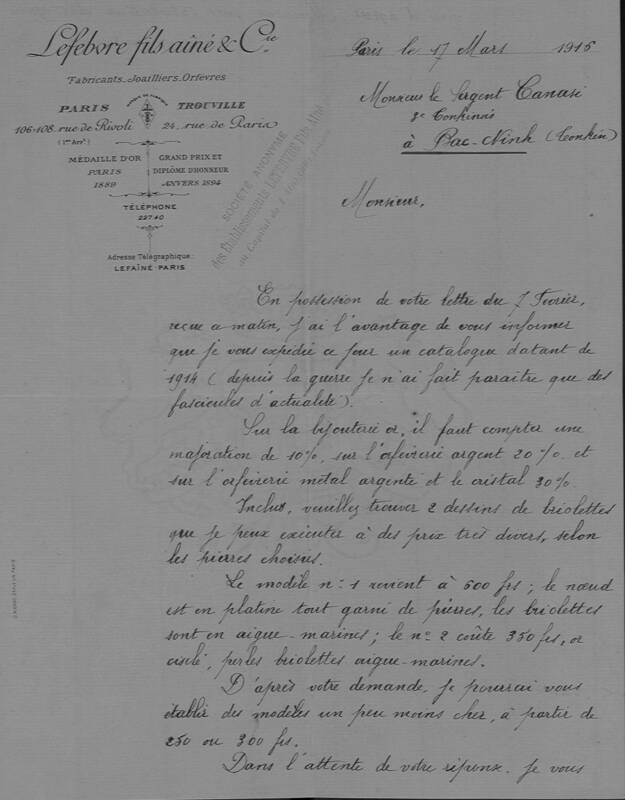 Lefebvre fils aîné & Cie
Fabricants-Joailliers-Orfèvres
PARIS
106-108, rue de Rivoli
(1er Arrt)
TROUVILLE
24, rue de Paris
MÉDAILLE D'OR
PARIS
1889
GRAND PRIX ET
DIPLÔME D'HONNEUR
ANVERS 1894
TÉLÉPHONE
227.40
Adresse Télégraphique:
LEFAÎNÉ-PARIS
SOCIÉTÉ ANONYME
des Établissements LEFEBVRE Fils Aîné
au Capital de
Paris le 17 Mars 1915
Monsieur le Sergent Canasi
3e Tonkinois
à Bac-Ninh (Tonkin)
Monsieur,
En possession de votre lettre du 7 Février,
reçue ce matin, j'ai l'avantage de vous informer
que je vous expédie ce jour un catalogue datant de
1914 (depuis la guerre je n'ai fait paraître que des
fascicules d'actualité).
Sur la bijouterie or, il faut compter une
majoration de 10%, sur l'orfèvrerie argent 20%. et
sur l'orfèvrerie métal argenté et le cristal 30%.
Inclus, veuillez trouver 2 dessins de briolettes
que je peux exécuter à des prix très divers, selon
les pierres choisies.
Le modèle n° 1 revient à 600 frs; le nœud
est en platine tout garni de pierres, les briolettes
sont en aigue-marines; le n° 2 coûte 350 frs, or
ciselé, perles briolettes aigue-marines.
D'après votre demande, je pourrai vous
établir des modèles un peu moins cher, à partir de
250 ou 300 frs.
Dans l'attente de votre réponse, je vous